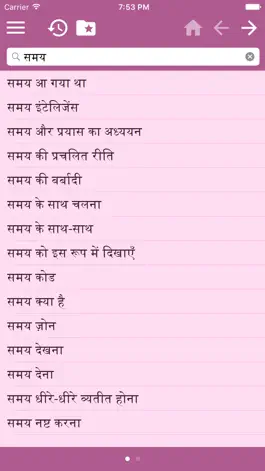 Carrier 7:53 PM
समय
समय आ गया था
समय इंटेलिजेंस
समय और प्रयास का अध्ययन
समय की प्रचलित रीति
समय की बर्बादी
समय के साथ चलना
समय के साथ-साथ
समय को इस रूप में दिखाएँ
समय कोड
समय क्या है
समय ज़ोन
समय देखना
समय देना
समय धीरे-धीरे व्यतीत होना
समय नष्ट करना